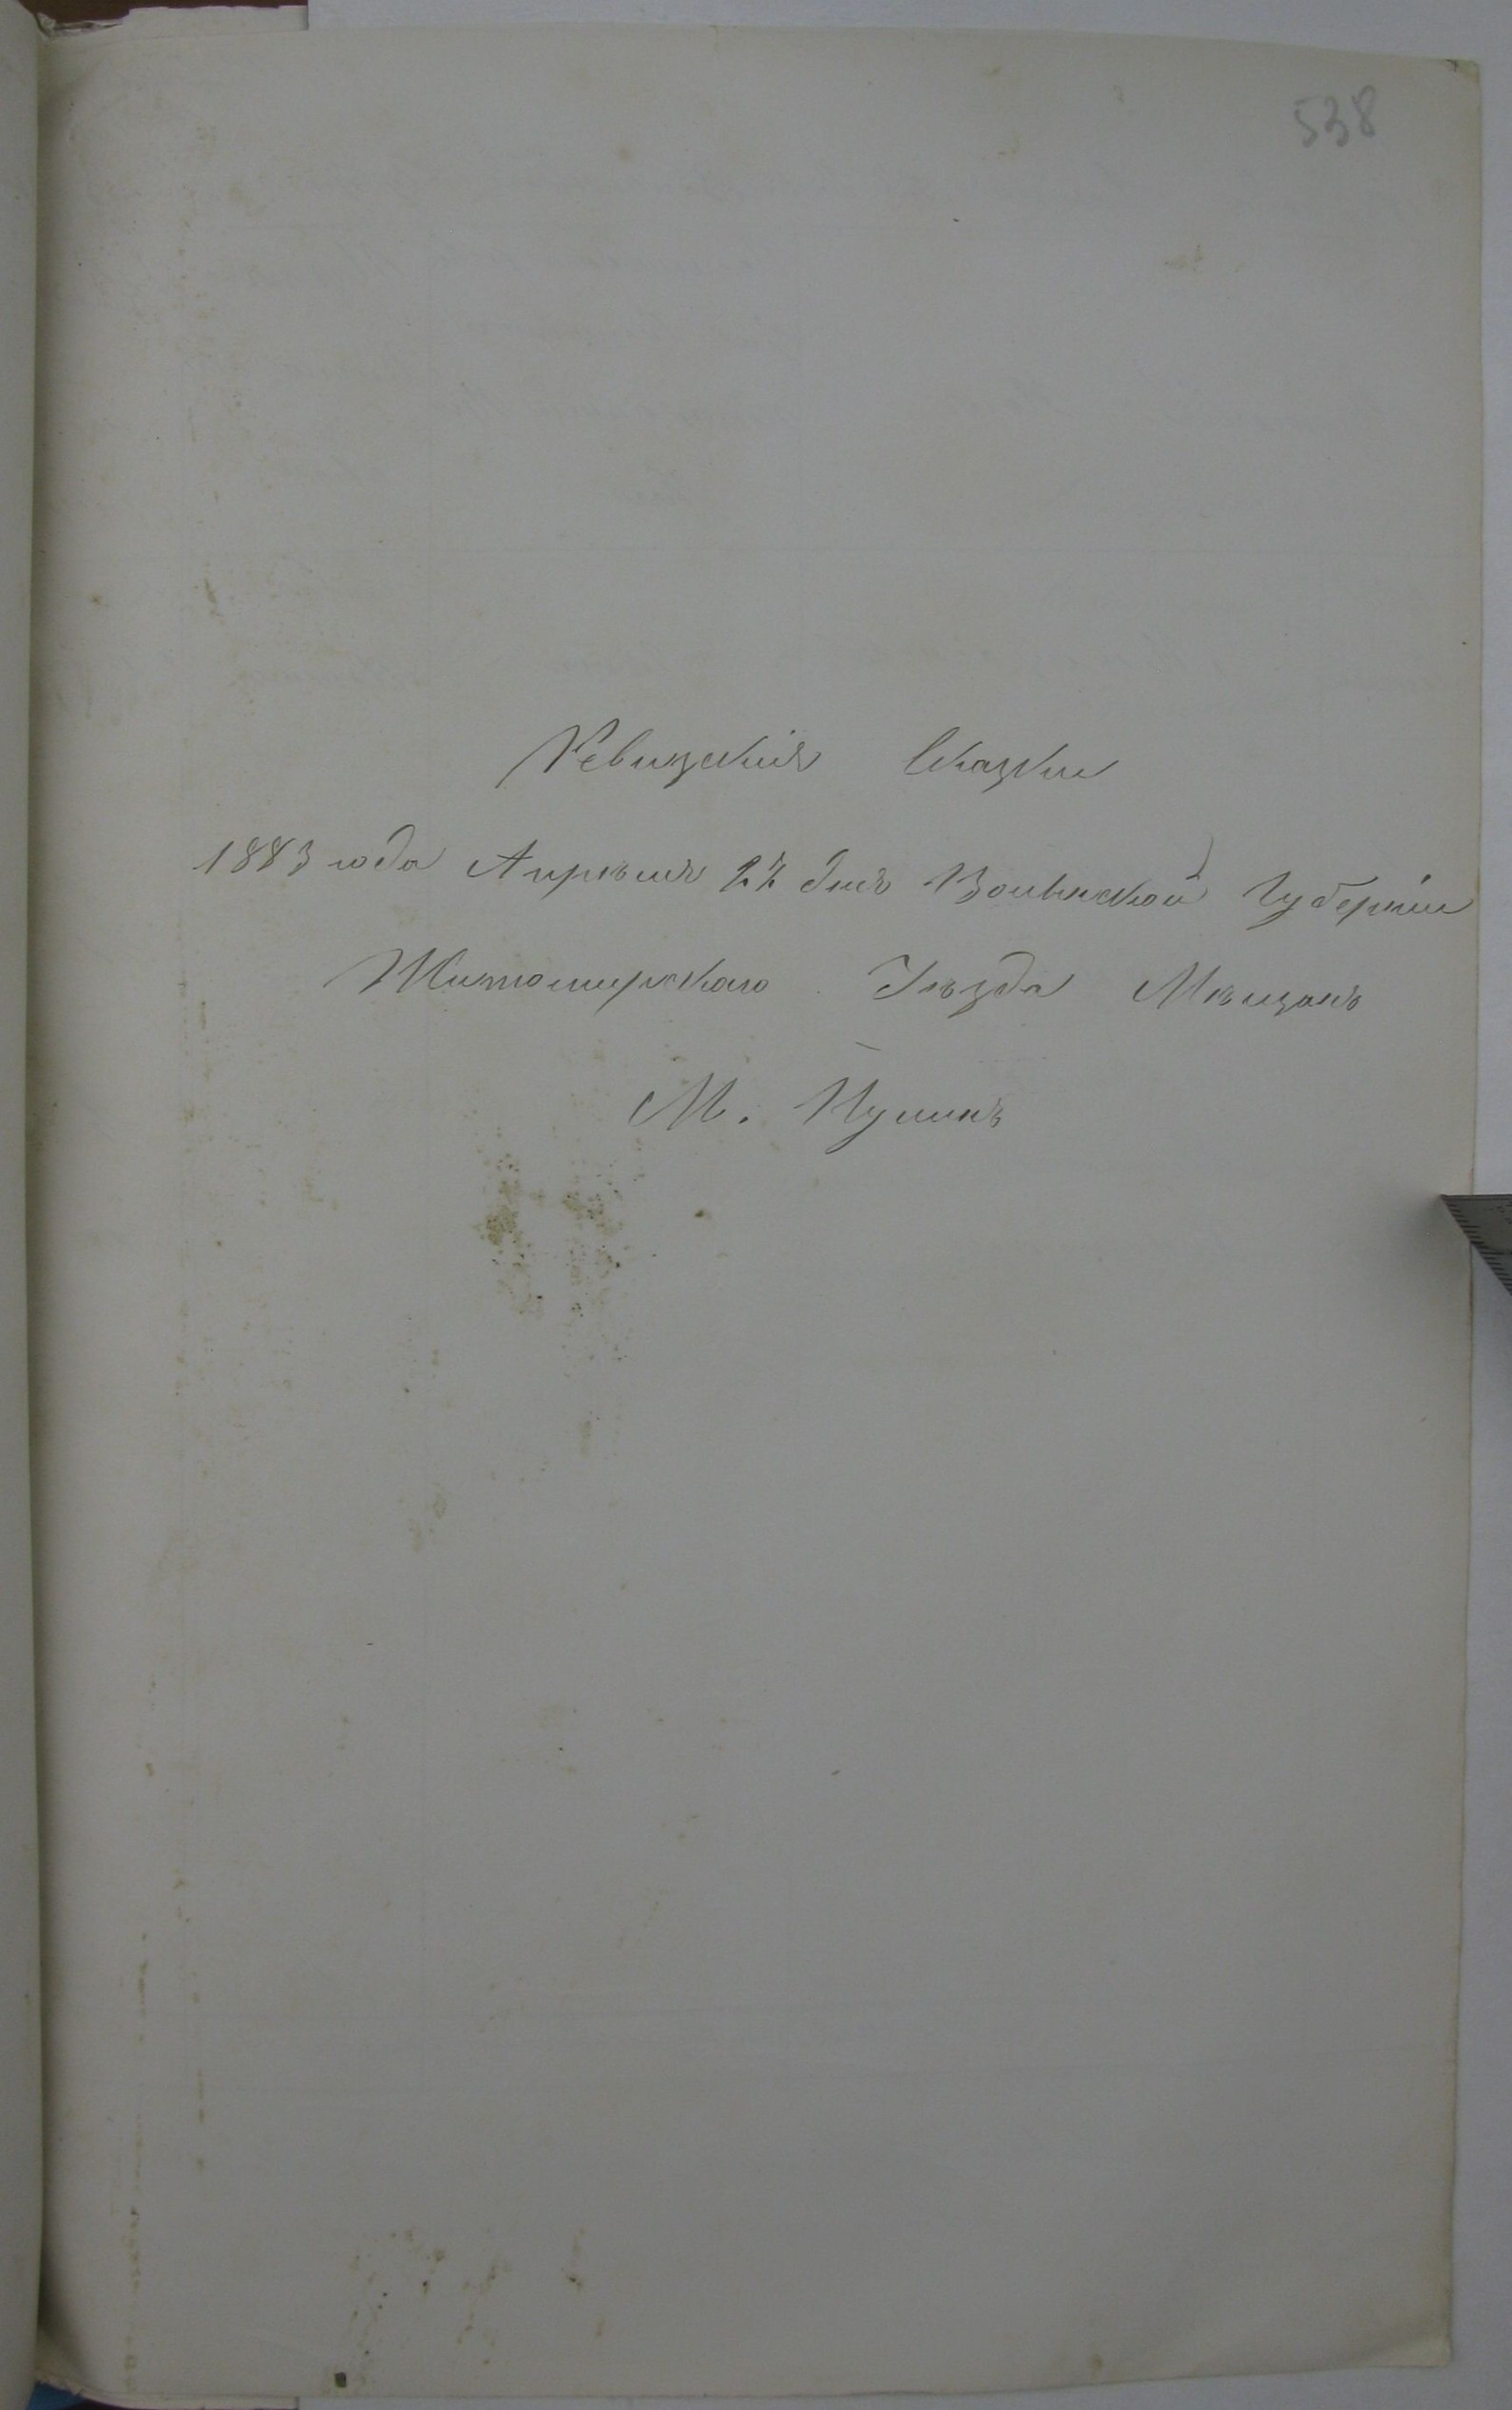 538
Ревизскія Сказки
1883 года Апрѣля 27 дня Волынской Губерніи
Житомирскаго Уѣзда Мѣщанъ
М. Пулинъ